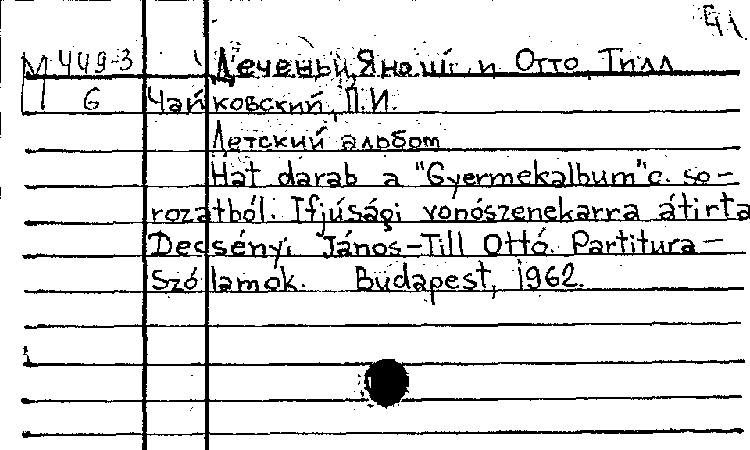 41
М 449-3 Деченьи, Янош и Отто, Тилл
6 Чайковский, П.И.
Детский альбом
Hat darab a "Gyermekalbum" c. so-
rozatból. Ifjúsági vonószenekarra átirta
Decsényi János-Till Ottó. Partitura-
Szólamok. Budapest, 1962.